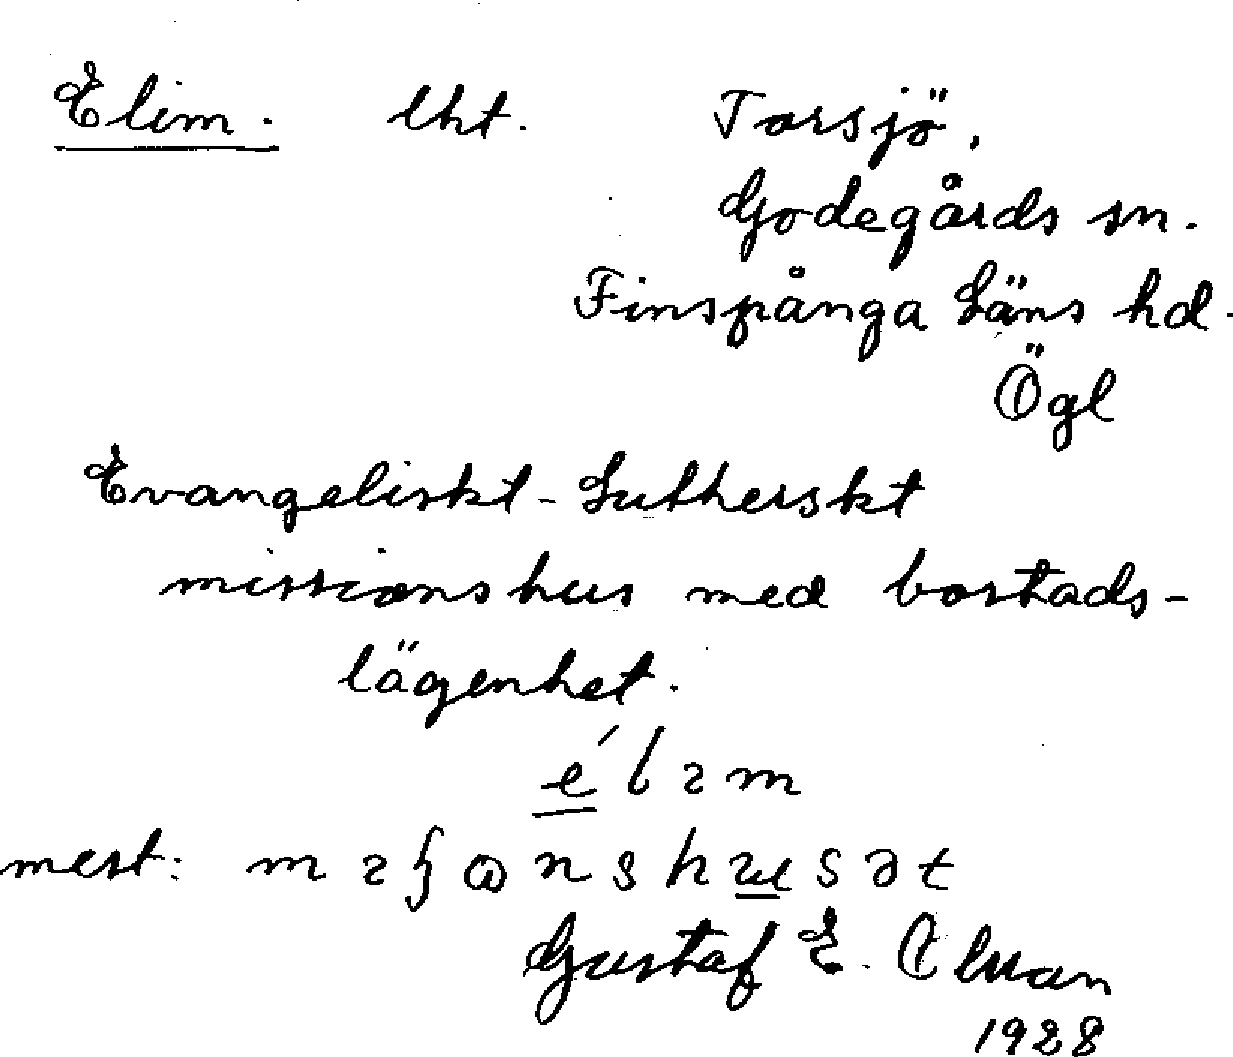 Elim. lht. Torsjö,
Godegårds sn.
Finspånga Läns hd.
Ögl
Evangeliskt-Lutherskt
missionshus med bostads-
lägenhet.
mest:
Gustaf E.
1928